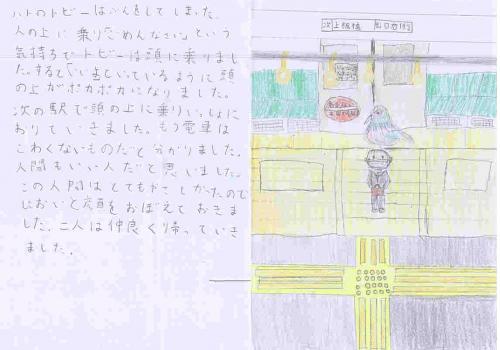 ハトのトビーはふんをしてしまった。
人の上に乗り「ごめんなさい」という
気持ちでトビーは頭に乗りまし
た。すると「いいよ」といっているように頭
の上がポカポカになりました。
次の駅で頭の上に乗りいっしょに
おりていきました。もう電車は
こわくないものだと分かりました。
人間もいい人だと思いました。
この人間はとてもやさしかったので
においと顔をおぼえておきま
した。二人は仲良く帰っていき
ました。
次 上板橋 出口右側